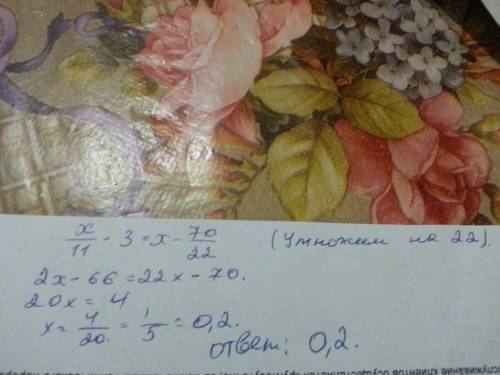 x/11 - 3 = x - 70/22 (Умножим на 22).
2x - 66 = 22x - 70.
20x = 4
x = 4/20. = 1/5 = 0,2.
ответ: 0,2.
служивание клиентов осуществляется